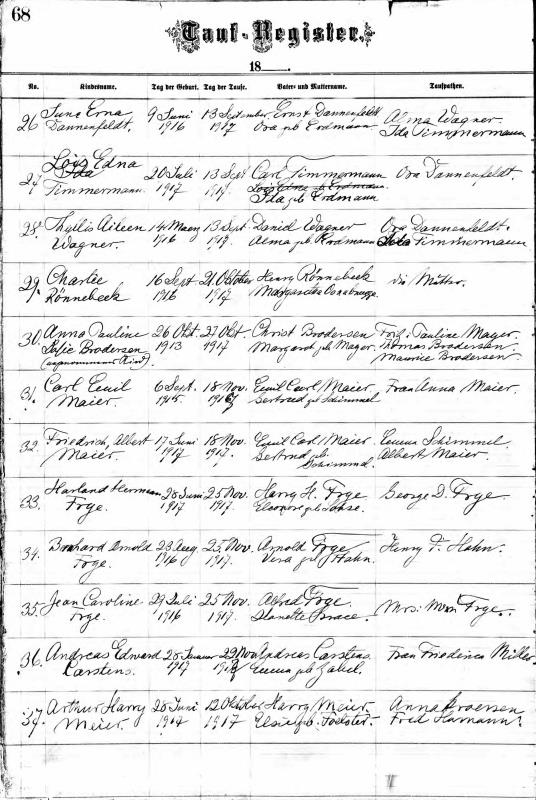 68
Tauf-Register.
18
No. Kindesname. Tag der Geburt. Tag der Taufe. Vater- und Muttername. Taufpathen.
26 June Erna 9 Juni 13 September Ernst Dannenfeldt Alma Wagner.
Dannenfeldt. 1916 1917 Ora geb Erdmann Ida Timmermann
27 Lois Edna 20 Juli 13 Sept Carl Timmermann Ora Dannenfeldt.
Ida
Timmermann. 1917 1917. Lois Edna geb Erdmann
Ida geb Erdmann
28. Thyllis Aileen 14 Maerz 13 Sept. Daniel Wagner Ora Dannenfeldt.
Wagner. 1916 1917. Alma geb Erdmann Timmermann
29. Charlie 16 Sept 21. Oktober Henry Rönnebeck die Mutter.
Rönnebeck 1916 1917 Margaretha
30. Anna Pauline 26 Okt. 27 Okt. Christ Brodersen Pauline Mager.
Sofie Brodersen 1913 1917. Margaret geb Mager. Thomas Brodersen
(angenommenes Kind). Maurice Brodersen
31. Carl Emil 6 Sept. 18 Nov. Emil Carl Maier Frau Anna Maier.
Maier. 1915 Gertrud geb Schimmel
32. Friedrich, Albert 17 Juni 18 Nov. Emil Carl Maier Emma Schimmel
Maier. 1917 1917. Gertrud geb Albert Maier.
Schimmel.
33. Harland Herman 28 Juni 25 Nov. Harry H. Frye George D. Frye.
Frye. 1917 1917. Eleonore geb
34. Bernhard Arnold 23 Aug. 25 Nov. Arnold Frye Henry F. Hahn.
Frye. 1916 1917. Vera geb Hahn.
35. Jean Caroline 29 Juli 25 Nov. Alfred Frye. Mrs. Frye.
Frye. 1916 1917.
36. Andreas Edward 28 Januar 29 Nov Andreas Carstens Frau Friederica Miller
Carstens. 1917 Emma geb Zabel.
37. Arthur Harry 28 Juni 12 Oktober Harry Meier. Anna
Meier. 1917 1917 Elsie geb. Foelster. Fred Hamann.